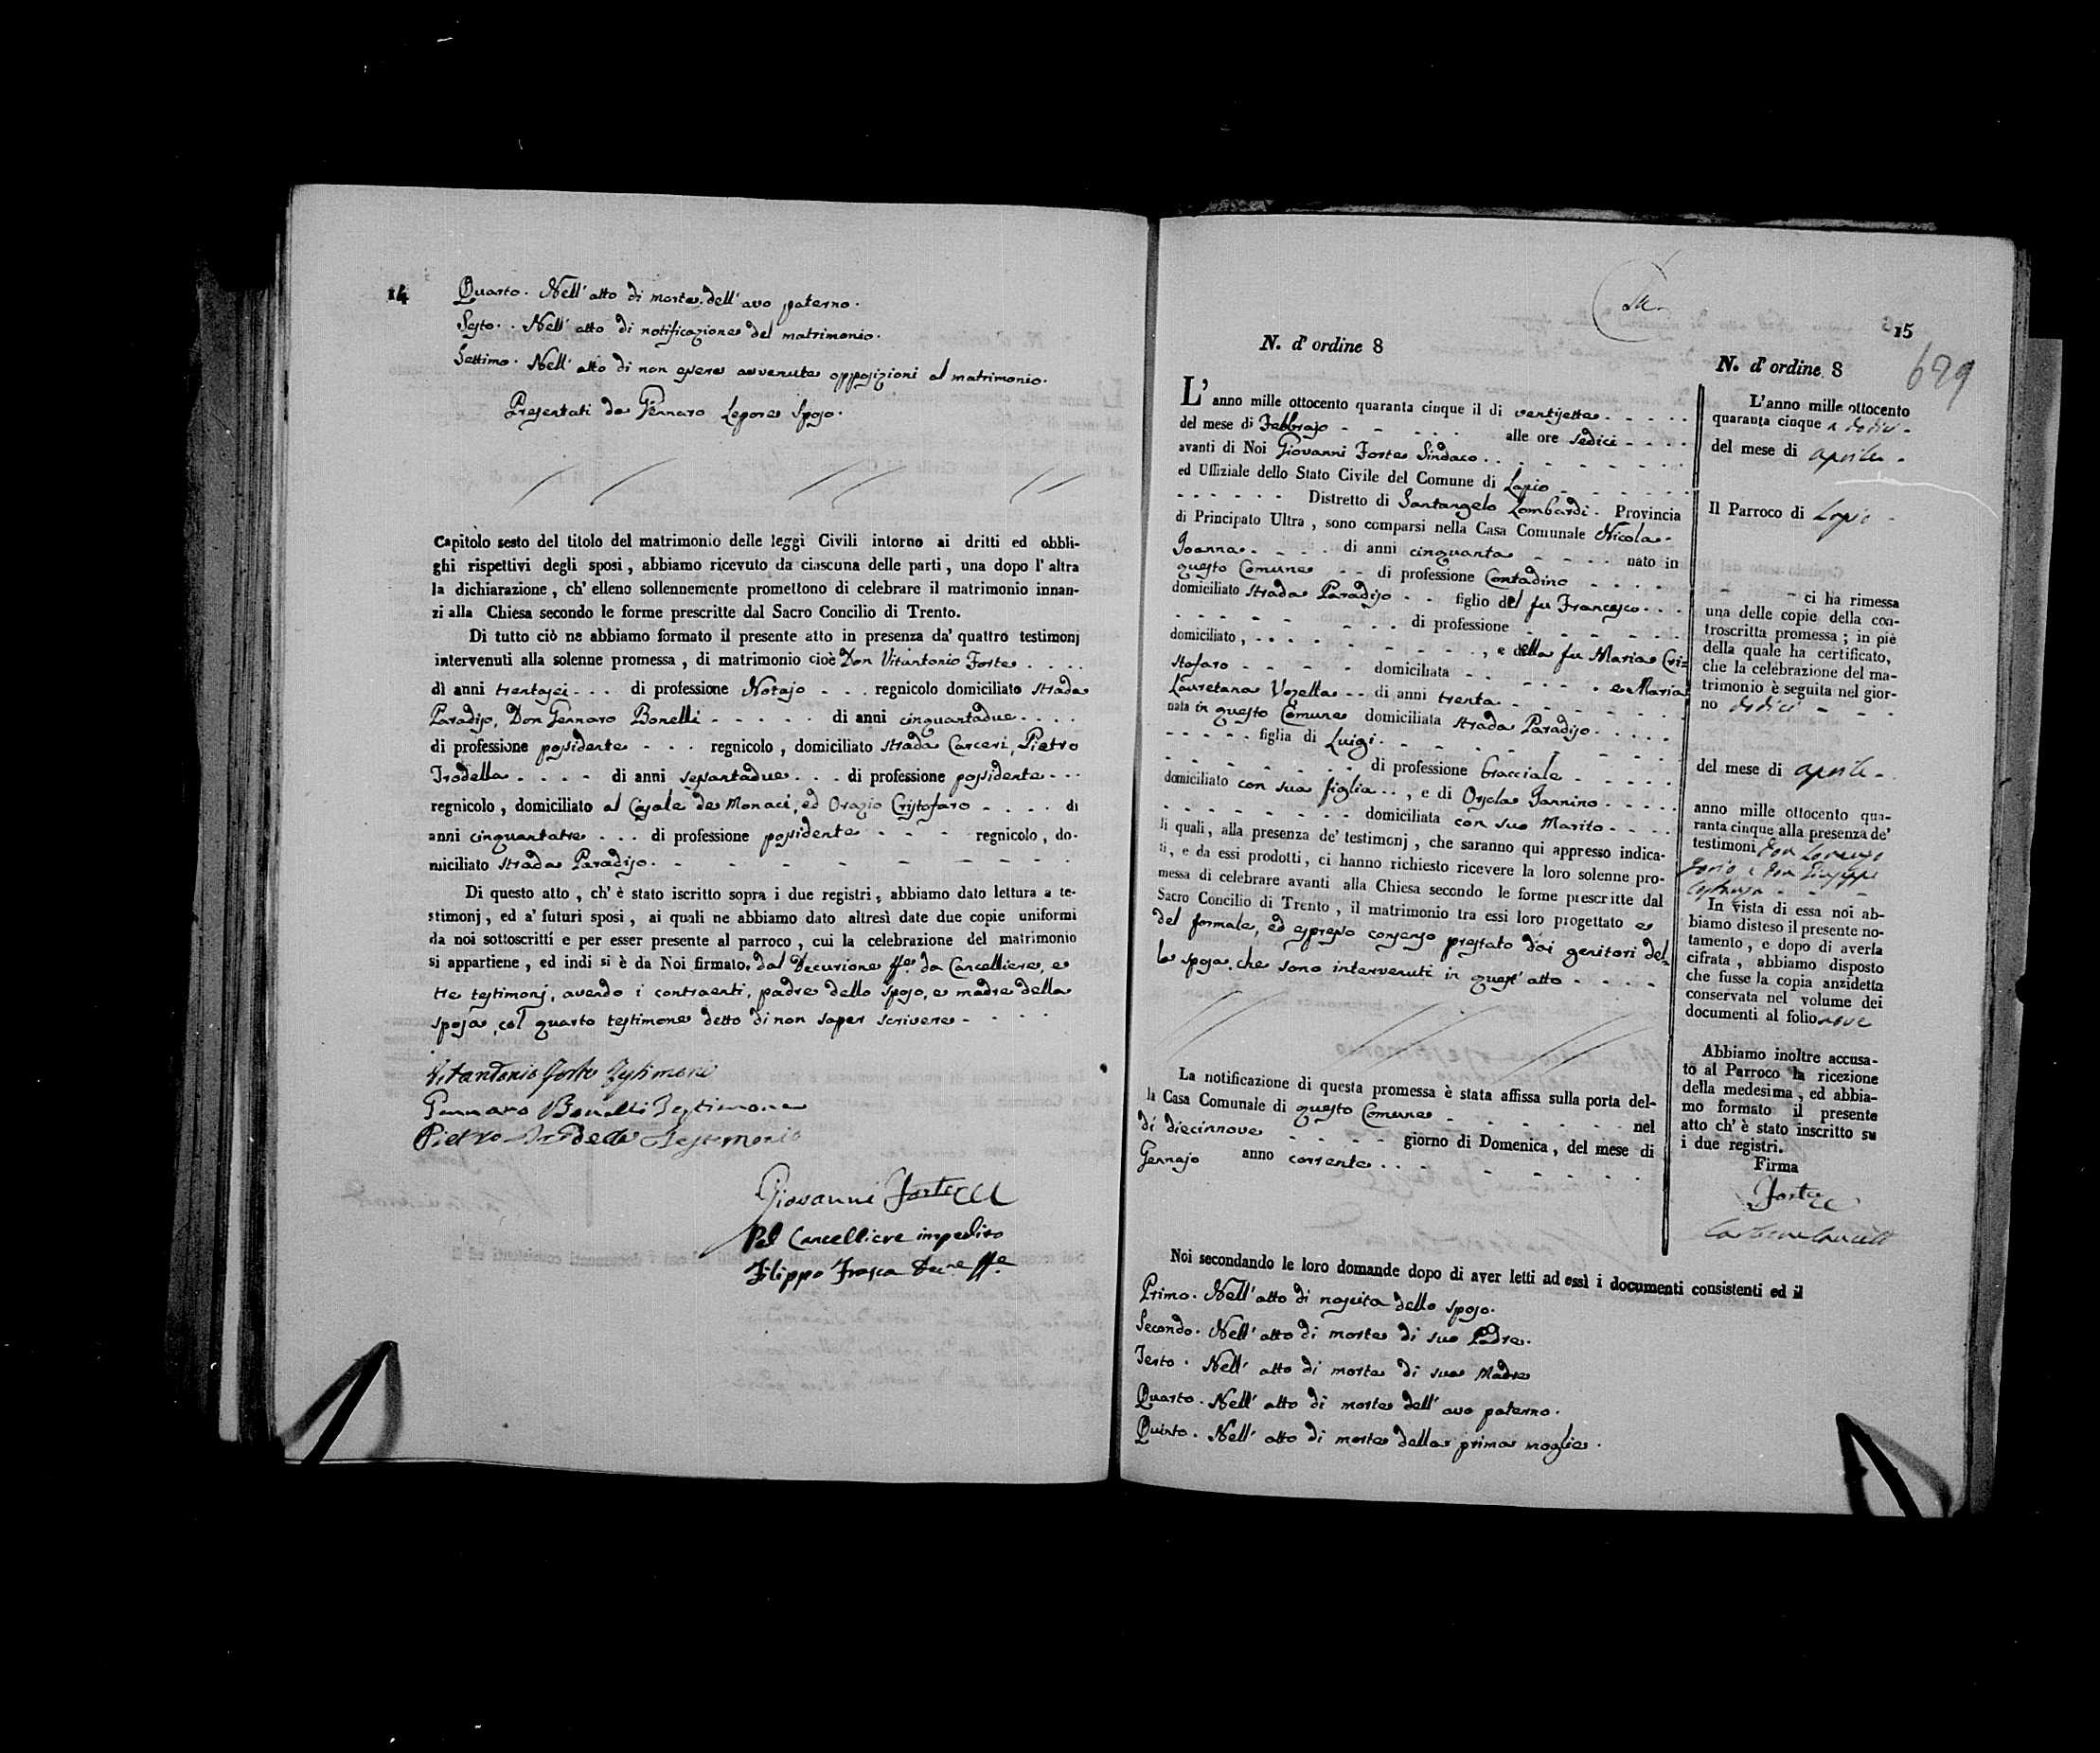 14
Quarto. Nell' atto di morte dell' avo paterno.
Sesto. Nell' atto di notificazione del matrimonio.
Settimo. Nell' atto di non essere avvenute opposizioni al matrimonio.
Presentati da Gennaro Lepore Sposo.
Capitolo sesto del titolo del matrimonio delle leggi Civili intorno ai dritti ed obbli-
ghi rispettivi degli sposi, abbiamo ricevuto da ciascuna delle parti, una dopo l' altra
la dichiarazione, ch' elleno sollennemente promettono di celebrare il matrimonio innan-
zi alla Chiesa secondo le forme prescritte dal Sacro Concilio di Trento.
Di tutto ciò ne abbiamo formato il presente atto in presenza da' quattro testimonj
intervenuti alla solenne promessa, di matrimonio cioè Don Vitantonio Forte
di anni trentasei di professione Notajo regnicolo domiciliato strada
Paradiso, Don Gennaro Bonelli di anni cinquantadue
di professione possidente regnicolo, domiciliato strada Carceri, Pietro
Trodella di anni sessantadue di professione possidente
regnicolo, domiciliato al Casale de Monaci, ed Orazio Cristofaro di
anni cinquantatre di professione possidente regnicolo, do-
miciliato strada Paradiso.
Di questo atto, ch' è stato iscritto sopra i due registri, abbiamo dato lettura a te-
stimonj, ed a' futuri sposi, ai quali ne abbiamo dato altresì date due copie uniformi
da noi sottoscritti e per esser presente al parroco, cui la celebrazione del matrimonio
si appartiene, ed indi si è da Noi firmato, dal Decurione ffe da Cancelliere, e
tre testimonj, avendo i contraenti, padre dello sposo, e madre della
sposa, col quarto testimone detto di non saper scrivere
Vitantonio Forte Testimone
Gennaro Bonelli Testimone
Pietro Trodella Testimonio
Giovanni Forte
Pel Cancelliere impedito
Filippo Frasca Decne ffe
15
629
N. d' ordine 8
L' anno mille ottocento quaranta cinque il di ventisette
del mese di Febbrajo alle ore sedici
avanti di Noi Giovanni Forte Sindaco
ed Uffiziale dello Stato Civile del Comune di Lapio
Distretto di Santangelo Lombardi Provincia
di Principato Ultra, sono comparsi nella Casa Comunale Nicola
Joanna di anni cinquanta nato in
questo Comune di professione Contadino
domiciliato strada Paradiso figlio del fu Francesco
di professione
domiciliato, , e della fu Maria Cri=
stofaro domiciliata e Maria
Lauretana Vozella di anni trenta
nata in questo Comune domiciliata strada Paradiso
figlia di Luigi
di professione bracciale
domiciliato con sua figlia, e di Orsola Jannino
domiciliata con suo Marito
li quali, alla presenza de' testimonj, che saranno qui appresso indica-
ti, e da essi prodotti, ci hanno richiesto ricevere la loro solenne pro-
messa di celebrare avanti alla Chiesa secondo le forme prescritte dal
Sacro Concilio di Trento, il matrimonio tra essi loro progettato e
del formale, ed espresso consenso prestato dai genitori del=
la sposa, che sono intervenuti in quest' atto
La notificazione di questa promessa è stata affissa sulla porta del-
la Casa Comunale di questo Comune nel
di diecinnove giorno di Domenica, del mese di
Gennajo anno corrente
N. d' ordine 8
L'anno mille ottocento
quaranta cinque a dodici
del mese di aprile
Il Parroco di Lapio
ci ha rimessa
una delle copie della con-
troscritta promessa; in piè
della quale ha certificato,
che la celebrazione del ma-
trimonio è seguita nel gior-
no dodici
del mese di aprile
anno mille ottocento qua-
ranta cinque alla presenza de'
testimoni Don Lorenzo
e Don Giuseppe
In vista di essa noi ab-
biamo disteso il presente no-
tamento, e dopo di averla
cifrata, abbiamo disposto
che fusse la copia anzidetta
conservata nel volume dei
documenti al folio nove
Abbiamo inoltre accusa-
to al Parroco la ricezione
della medesima, ed abbia-
mo formato il presente
atto ch' è stato inscritto su
i due registri.
Firma
Forte
Noi secondando le loro domande dopo di aver letti ad essi i documenti consistenti ed il
Primo. Nell' atto di nascita dello sposo.
Secondo. Nell' atto di morte di suo Padre.
Terto. Nell' atto di morte di sua Madre
Quarto. Nell' atto di morte dell' avo paterno.
Quinto. Nell' atto di morte della prima moglie.